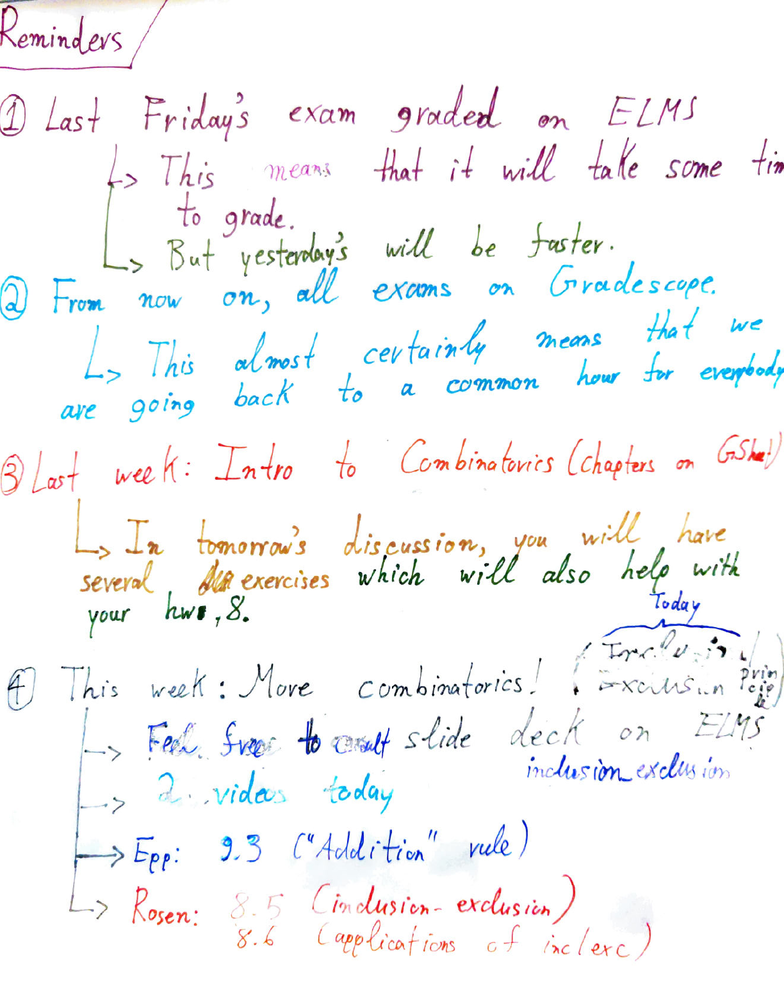 Reminders
① Last Friday's exam graded on ELMS
↳ This means that it will take some tim
to grade.
↳ But yesterday's will be faster.
② From now on, all exams on Gradescope.
↳ This almost certainly means that we
are going back to a common hour for everybody
③ Last week: Intro to Combinatorics (Chapters on GSheet)
↳ In tomorrow's discussion, you will have
several exercises which will also help with
your hw, 8.
Today
④ This week: More combinatorics! (Inclusion/
Exclusion principle)
↳ Feel free to consult slide deck on ELMS
inclusion_exclusion
→ 2 videos today
→ Epp: 9.3 ("Addition" rule)
↳ Rosen: 8.5 (inclusion-exclusion)
8.6 (applications of inc/exc)